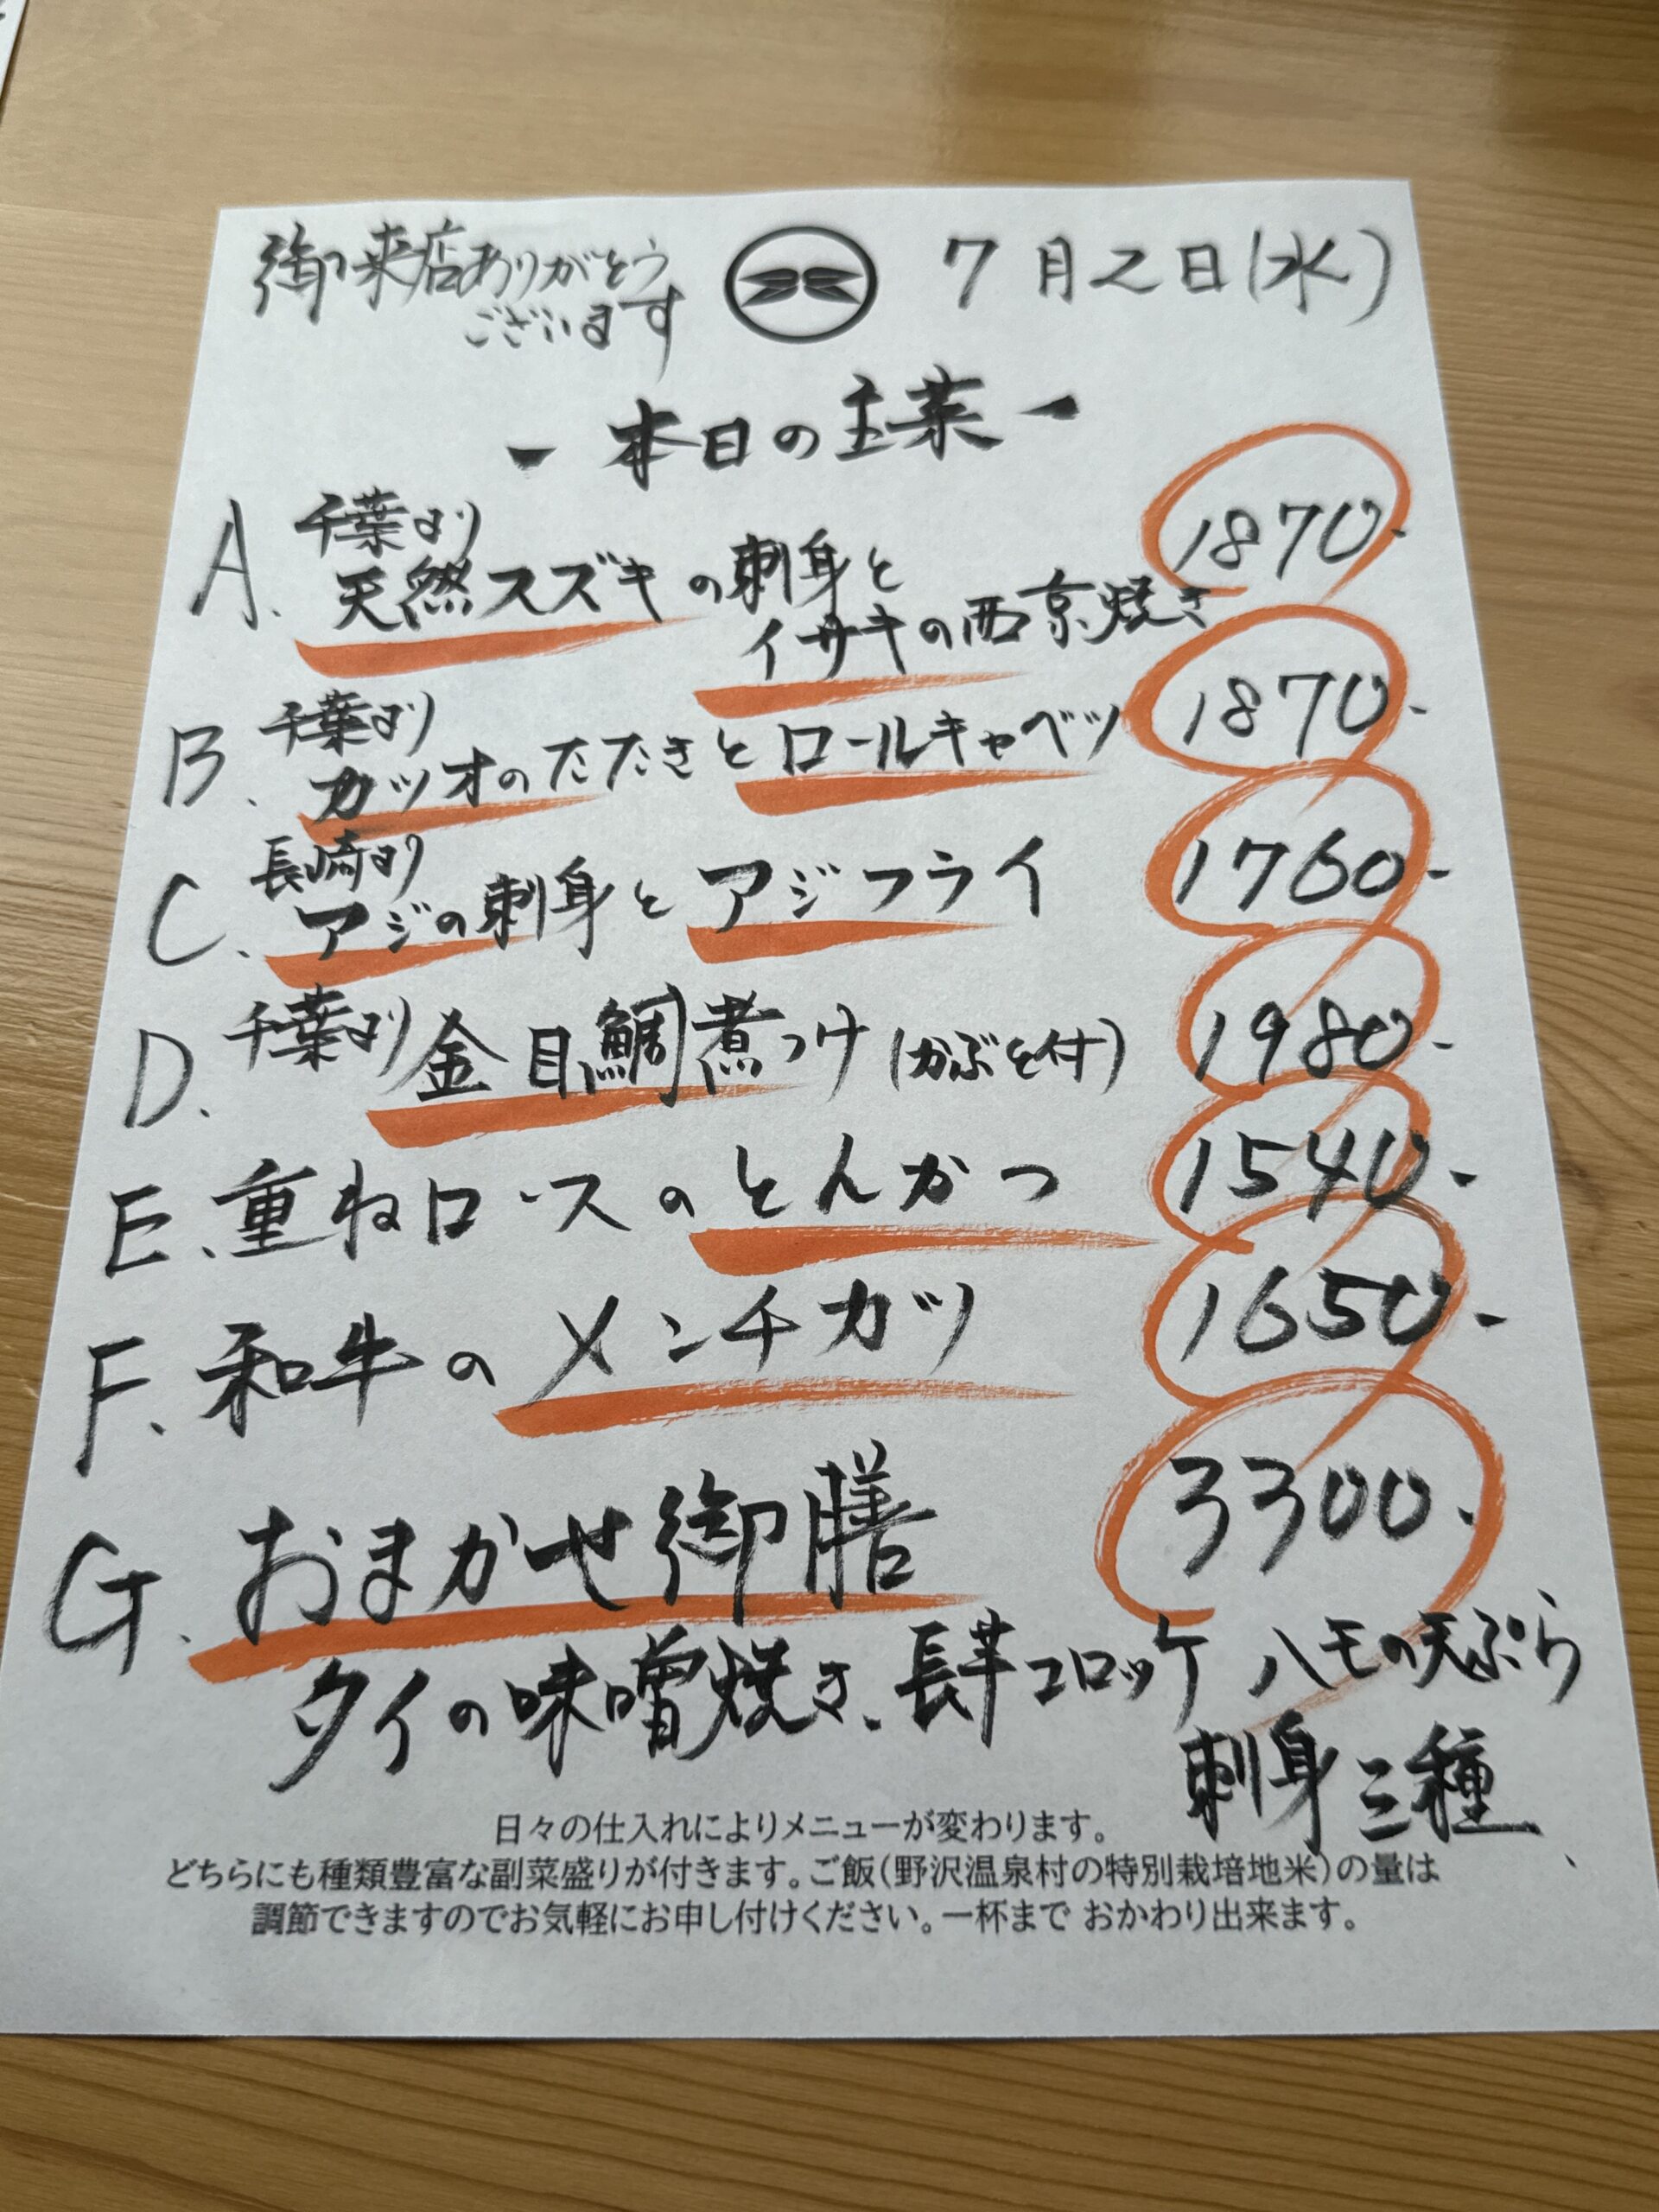 御来店ありがとう
ございます
7月2日(水)
-本日の主菜-
A. 千葉より
天然スズキの刺身と
イサキの西京焼き
1870.-
B. 千葉より
カツオのたたきとロールキャベツ
1870.-
C. 長崎より
アジの刺身とアジフライ
1760.-
D. 千葉より 金目鯛煮つけ(かぶと付)
1980.-
E. 重ねロースのとんかつ
1540.-
F. 和牛のメンチカツ
1650.-
G. おまかせ御膳
3300.-
タイの味噌焼き、長芋コロッケ ハモの天ぷら
刺身三種
日々の仕入れによりメニューが変わります。
どちらにも種類豊富な副菜盛りが付きます。ご飯(野沢温泉村の特別栽培地米)の量は
調節できますのでお気軽にお申し付けください。一杯まで おかわり出来ます。